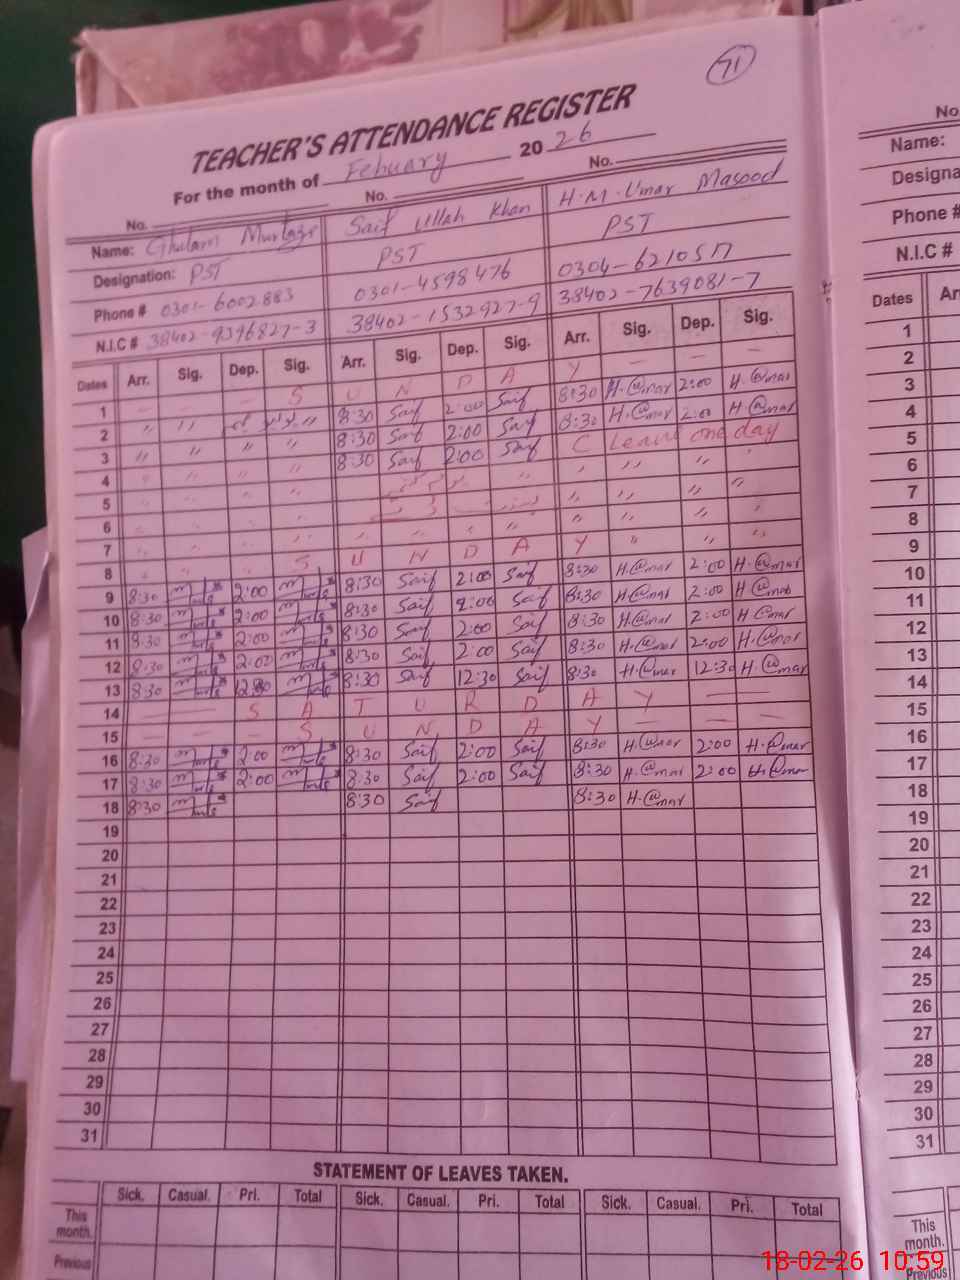 71
TEACHER'S ATTENDANCE REGISTER
For the month of Febuary 2026
No. No. No.
Name: Ghulam Murtaza Saif Ullah Khan H.M.Umar Masood
Designation: PST PST PST
Phone # 0301-6002883 0301-4598476 0304-6210517
N.I.C # 38402-9396827-3 38402-1532927-9 38402-7639081-7
Dates Arr. Sig. Dep. Sig. Arr. Sig. Dep. Sig. Arr. Sig. Dep. Sig.
1 - - - S U N D A Y - - -
2 " " " 8:30 Saif 2:00 Saif 8:30 H.@mar 2:00 H.@mar
3 " " " " 8:30 Saif 2:00 Saif 8:30 H.@mar 2:00 H.@mar
4 " " " " 8:30 Saif 2:00 Saif C Leave one day
5 " " " " " " " "
6 " " " " " " " "
7 " " " " " " " " " " " "
8 " " " S U N D A Y " " "
9 8:30 2:00 8:30 Saif 2:00 Saif 8:30 H.@mar 2:00 H.@mar
10 8:30 2:00 8:30 Saif 2:00 Saif 8:30 H.@mar 2:00 H.@mar
11 8:30 2:00 8:30 Saif 2:00 Saif 8:30 H.@mar 2:00 H.@mar
12 8:30 2:00 8:30 Saif 2:00 Saif 8:30 H.@mar 2:00 H.@mar
13 8:30 12:30 8:30 Saif 12:30 Saif 8:30 H.@mar 12:30 H.@mar
14 - - S A T U R D A Y - -
15 - - - S U N D A Y - - -
16 8:30 2:00 8:30 Saif 2:00 Saif 8:30 H.@mar 2:00 H.@mar
17 8:30 2:00 8:30 Saif 2:00 Saif 8:30 H.@mar 2:00 H.@mar
18 8:30 8:30 Saif 8:30 H.@mar
19
20
21
22
23
24
25
26
27
28
29
30
31
STATEMENT OF LEAVES TAKEN.
Sick. Casual. Pri. Total Sick. Casual. Pri. Total Sick. Casual. Pri. Total
This month.
Previous
No
Name:
Designa
Phone #
N.I.C #
Dates Arr
1
2
3
4
5
6
7
8
9
10
11
12
13
14
15
16
17
18
19
20
21
22
23
24
25
26
27
28
29
30
31
This month.
Previous
18-02-26 10:59